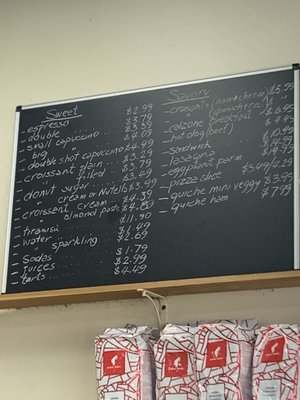 Sweet
- espresso $2.99
- double $3.79
- small capuccino $3.59
- big " $4.09
- double shot capuccino $4.49
- croissant plain $3.29
- " filled $3.79
- donut sugar $3.49
- " cream or Nutella $3.99
- croissant cream $4.39
almond paste $4.80
- tiramisu $11.90
- water $1.49
" sparkling $2.69
- Sodas $1.79
- Juices $2.99
- tarts $4.49
Savory
- croissants (ham+cheese) $5.99
- calzone (breakfast)
- hot dog (beef)
- sandwich
- lasagna
- eggplant parm
- pizza slice $5.49/4.29
- quiche mini veggy $3.95
- quiche ham $7.99